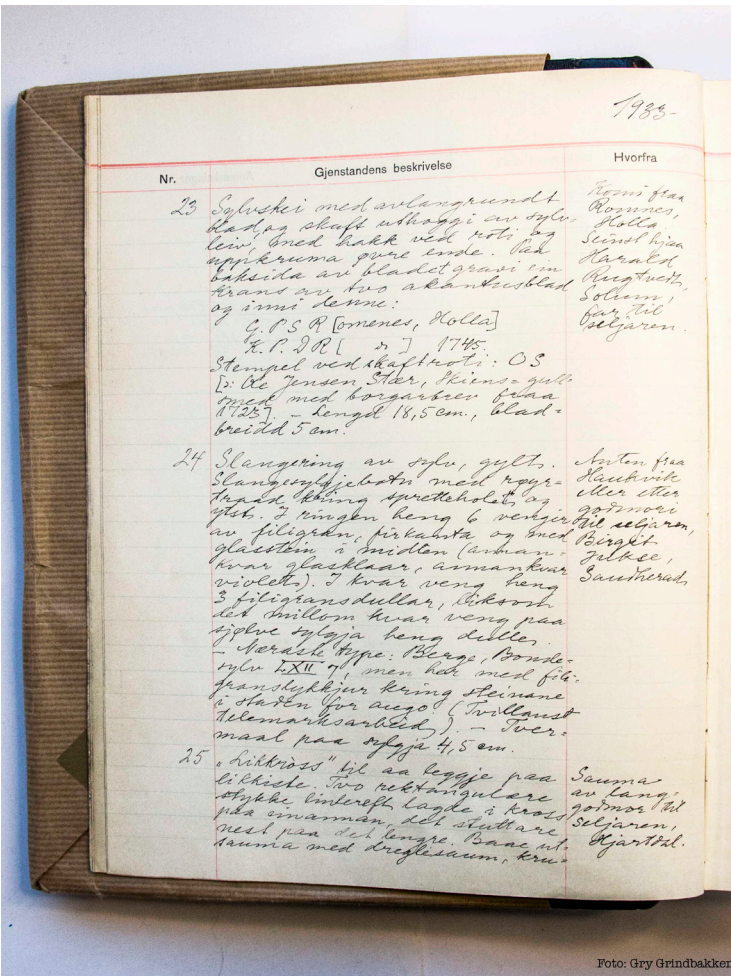 1933-
Nr.
Gjenstandens beskrivelse
Hvorfra
23
Sylvskei med avlangrundt
blad, og skaft uthoggi av sylv-
leiv, med hakk ved roti og
uppkruma øvre ende. Paa
baksida av bladet gravi ein
krans av tvo akantusblad
og inni denne:
G. P S R [omenes, Holla]
K. P. D R [ ] 1745.
Stempel ved skaftroti: OS
[ɔ: Ole Jensen Stær, Skiens-gull-
smed med borgarbrev fraa
1723]. - Lengd 18,5 cm., blad-
breidd 5 cm.
Komi fraa
Romnes,
Holla
Seinst hjaa
Harald
Rugtveit,
Solum,
far til
seljaren.
24
Slangering av sylv, gylt.
Slangesylgjebotn med røyr-
traad kring spretteholet og
ytst. I ringen heng 6 vengir
av filigran, firkanta og med
glasstein i midten (annan-
kvar glasklaar, annankvar
violett). I kvar veng heng
3 filigransdullar, liksom
det millom kvar veng paa
sjølve sylgja heng dullar.
- Næraste type: Berge, Bonde-
sylv LXII 7, men her med fili-
granstykkjur kring steinane
i staden for augo. (Tvillaust
telemarksarbeid). - Tver-
maal paa sylgja 4,5 cm.
Anten fraa
Haukvik
eller etter
godmori
til seljaren,
Birgit
Jukse,
Sauherad
25
"Likkross" til aa leggje paa
likkiste. Tvo rektangulære
stykke, linereft lagde i kross
paa einannan, det stuttare
nest paa det lengre. Baae ut-
sauma med dreglesaum, kru-
Sauma
av lang-
godmor til
seljaren,
Hjartdal.
Foto: Gry Grindbakken